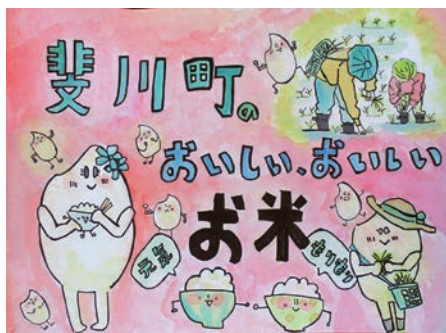 斐川町の
おいしい、おいしい
お米
元気
もりもり